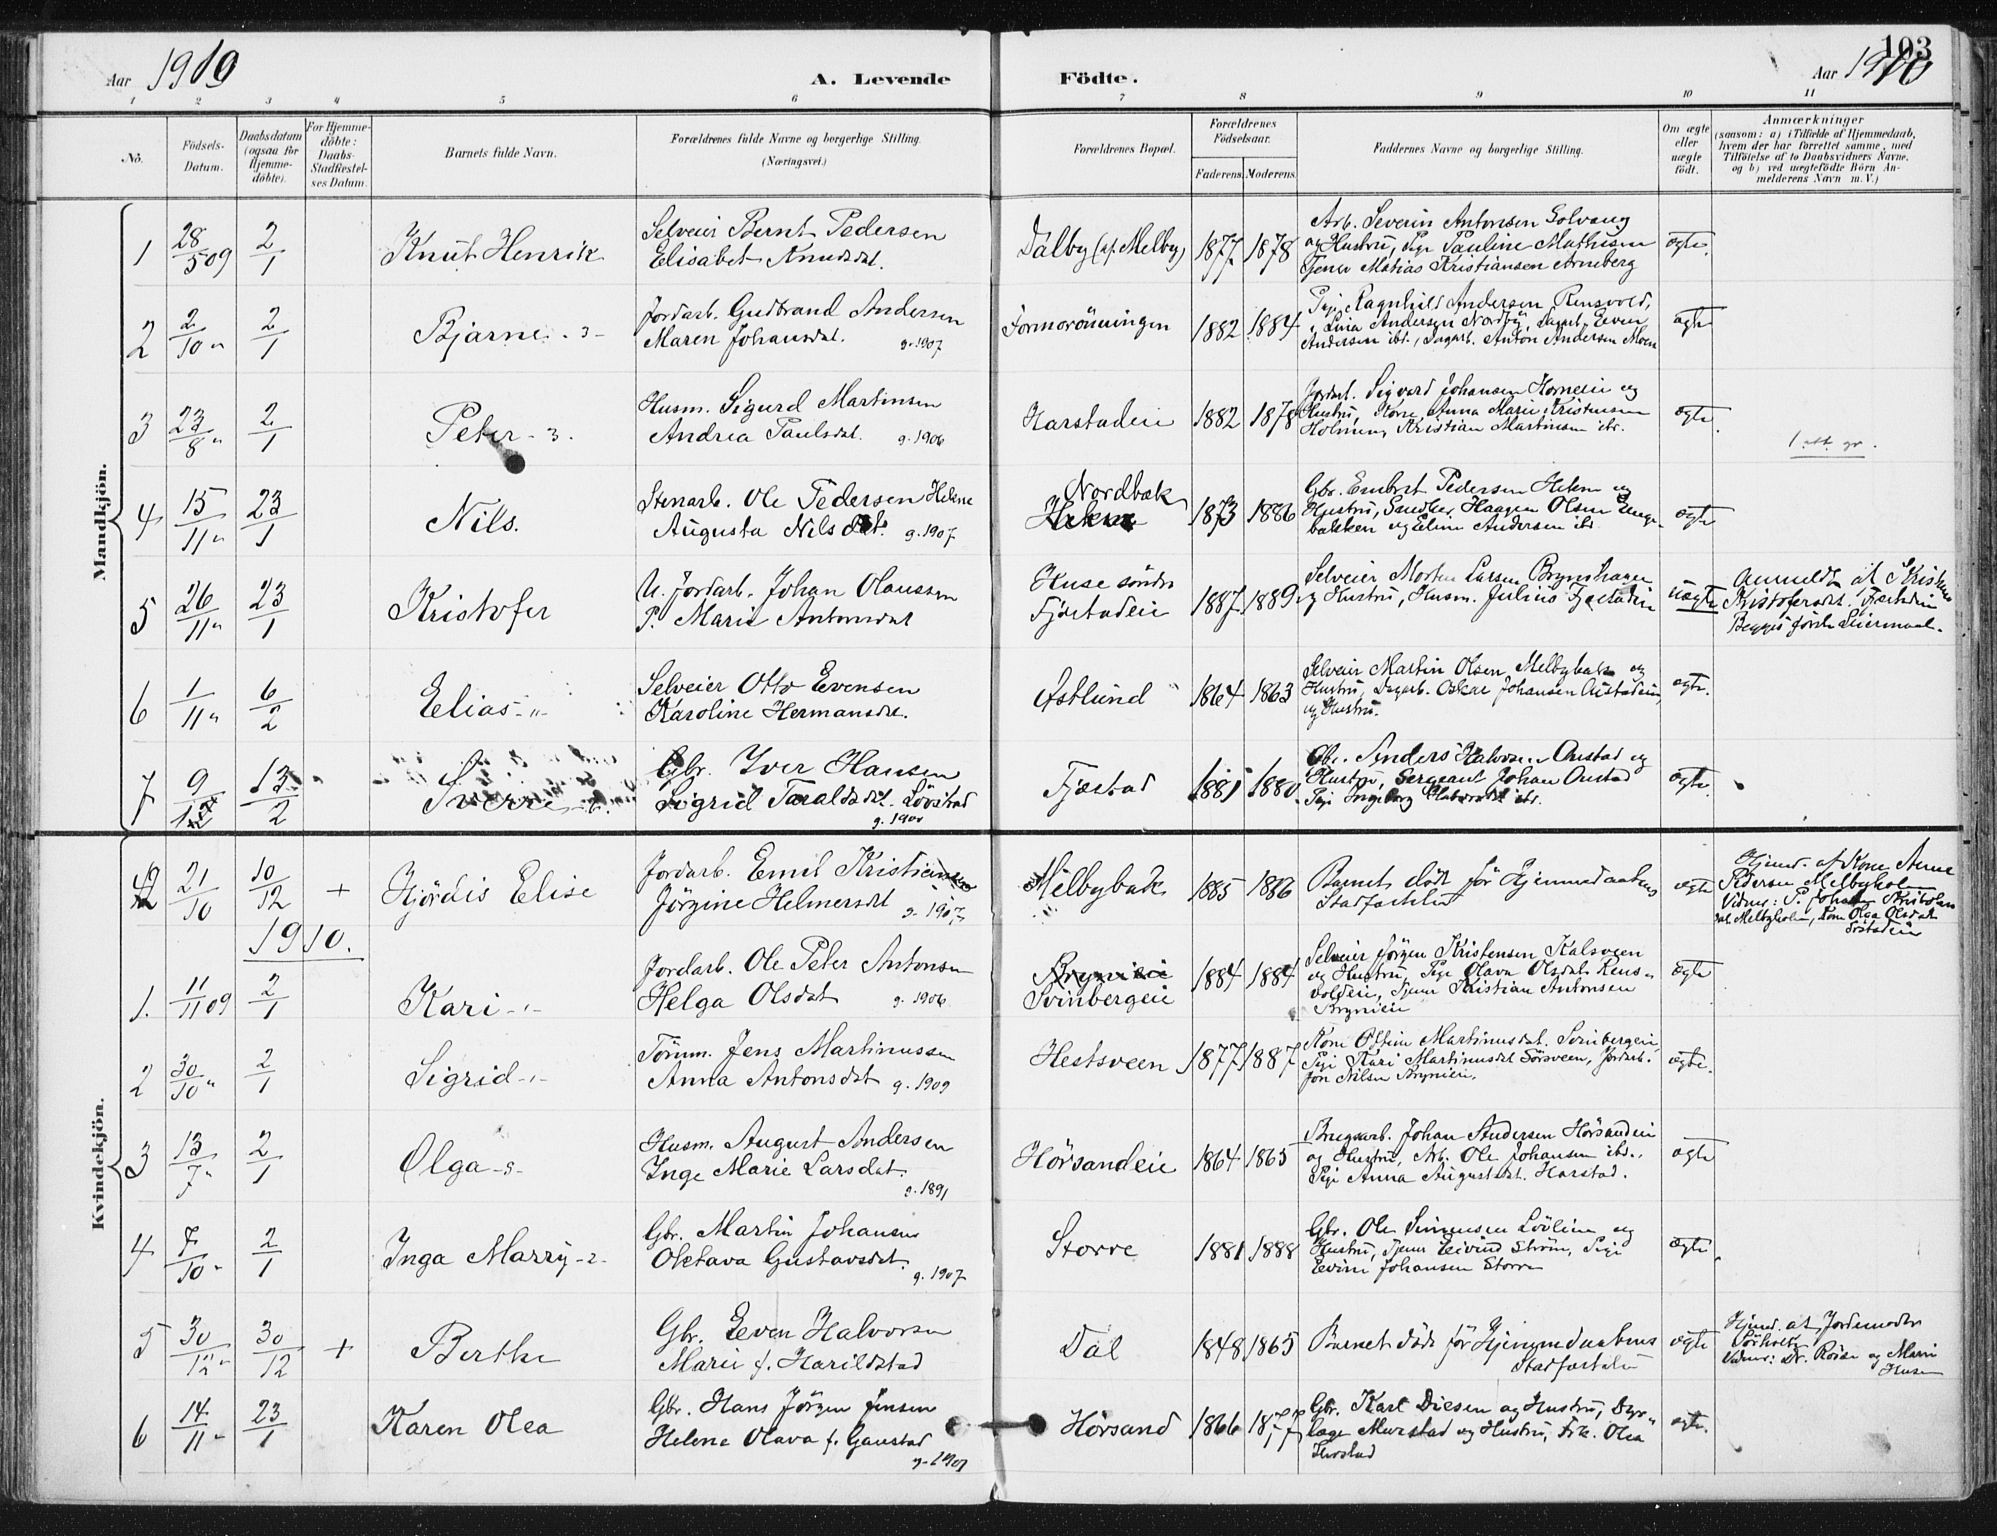 103
Aar 1910
A. Levende
Födte.
Aar 1910
1 2 3 4 5 6 7 8 9 10 11
No.
Födsels-Datum.
Daabsdatum (ogsaa for Hjemme-döbte).
For Hjemme-döbte: Daabs-Stadfæstel-ses Datum.
Barnets fulde Navn.
Forældrenes fulde Navne og borgerlige Stilling. (Næringsvei.)
Forældrenes Bopæl.
Forældrenes Födselsaar.
Faderens. Moderens.
Faddernes Navne og borgerlige Stilling.
Om ægte eller uægte födt.
Anmærkninger
(saasom: a) i Tilfælde af Hjemmedaab,
hvem der har forrettet samme, med
Tilföielse af to Daabsvidners Navne,
og b) ved uægtefödte Börn An-
melderens Navn m. V.)
Mandkjön.
1 28/5 09 2/1 Knut Henrik
Selveier Bernt Pedersen
Elisabet Knudsdat.
Dalby (af Melby) 1877 1878
Arb. Severin Antonsen Solvang
og Hustru, Pige Pauline Mathisen
Tjener Matias Kristiansen Arneberg
ægte.
2 2/10 " 2/1 Bjarne - 3 -
Jordarb. Gudbrand Andersen
Maren Johansdat. g. 1907
Formoröinningen 1882 1884
Pige Ragnhild Andersen Rensvold,
" Lina Andersen Nordby, Dagarb. Even
Andersen ibd., Dagarb. Anton Andersen Moen
ægte
3 23/8 " 2/1 Peter - 3.
Husm. Sigurd Martinsen
Andrea Paulsdat. g. 1906
Harstadeie 1882 1878
Jordarb. Sigvard Johansen Horneseie og
Hustru, Kone Anna Marie Kristensen
Holmen, Kristian Martinsen ibd.
ægte.
1 att. gr.
4 15/11 " 23/1 Nils.
Stenarb. Ole Pedersen Hekne
Augusta Nilsdat. g. 1907
Nordbæk
Hekne 1873 1886
Gbr. Embret Pedersen Hekne og
Hustru, Haagen Olsen Enge-
bakken og Eline Andersen ibd.
ægte
5 26/11 " 23/1 Kristofer
U. Jordarb. Johan Olaussen
P. Marie Antonsdat
Huse söndre
Fjæstadeie 1887 1889
Selveier Morten Larsen Brynshagen
og Hustru, Husm. Julius Fjæstadeie
uægte
Anmeldt af
Kristofersdat. Fjæstadeie
Begges förste Leiermaal.
6 1/11 " 6/2 Elias - " -
Selveier Otto Evensen
Karoline Hermansdat.
Östlund 1864 1863
Selveier Martin Olsen Melbybak og
Hustru, Dagarb. Oskar Johansen Önstadeie,
og Hustru.
ægte.
7 9/12 13/2 Sverre - 6.
Gbr. Iver Hansen
Sigrid Taraldsdat. Lövstad
g. 1900
Fjæstad 1881 1880
Gbr. Anders Halvorsen Önstad og
Hustru, Sergeant Johan Önstad
Pige Ingeborg Halvorsdat ibd.
ægte.
Kvindekjön.
42 21/10 10/12 + Hjördis Elise
Jordarb. Emil Kristiansen
Jörgine Helmersdat g. 1907
Melbybak 1885 1886
Barnet död för Hjemmedaabens
Stadfæstelse
ægte
Hjemd. af Kone Anne
Pedersen Melbyholm
Vidner: P. Johan Kristian-
sen Melbyholm, Kone Olga Olsdat
1910.
1. 11/11 09 2/1 Kari - " -
Jordarb. Ole Peter Antonsen
Helga Olsdat g. 1906
Brynieie
Svinbergeie 1884 1884
Selveier Jörgen Kristensen Kalsveen
og Hustru, Pige Olava Olsdat Rens-
voldeie, Tjener Kristian Antonsen
Brynieie
ægte
2 30/10 " 2/1 Sigrid - " -
Tömm. Jens Martinussen
Anna Antonsdat g. 1909
Hestsveen 1877 1887
Kone Martinusdat. Svinbergeie,
Pige Kari Martinusdat Sörsveen, Jordarb.
Jon Nilsen Brynieie.
ægte.
3 13/7 " 2/1 Olga - 8 -
Husm. August Andersen
Inge Marie Larsdat.
g. 1891
Hörsandeie 1864 1865
Brugsarb. Johan Andersen Hörsandeie
og Hustru, Arb. Ole Johansen ibd.,
Pige Anna Augustsdat. Harstad.
ægte
4 7/10 " 2/1 Inga Marry - 2 -
Gbr. Martin Johansen
Oletava Gustavsdat.
g. 1907
Storre 1881 1888
Gbr. Ole Simensen Lövlien og
Hustru, Tjener Eivind Ström, Pige
Evine Johansen Storre
ægte.
5 30/12 " 30/12 + Berthe
Gbr. Even Halvorsen
Marie f. Harildstad
Dal 1848 1865
Barnet död för Hjemmedaabens
Stadfæstelse
ægte
Hjemd. af Jordemoder
Sörholte
Vidner: Dr. Röise og Marie
Husen
6 14/11 " 23/1 Karen Olea
Gbr. Hans Jörgen Jensen
Helene Olava f. Gaustad
g. 1901
Hörsand 1866 1877
Gbr. Karl Diesen og Hustru, Dyr-
læge Murstad og Hustru, Frk. Olea
Harstad
ægte.